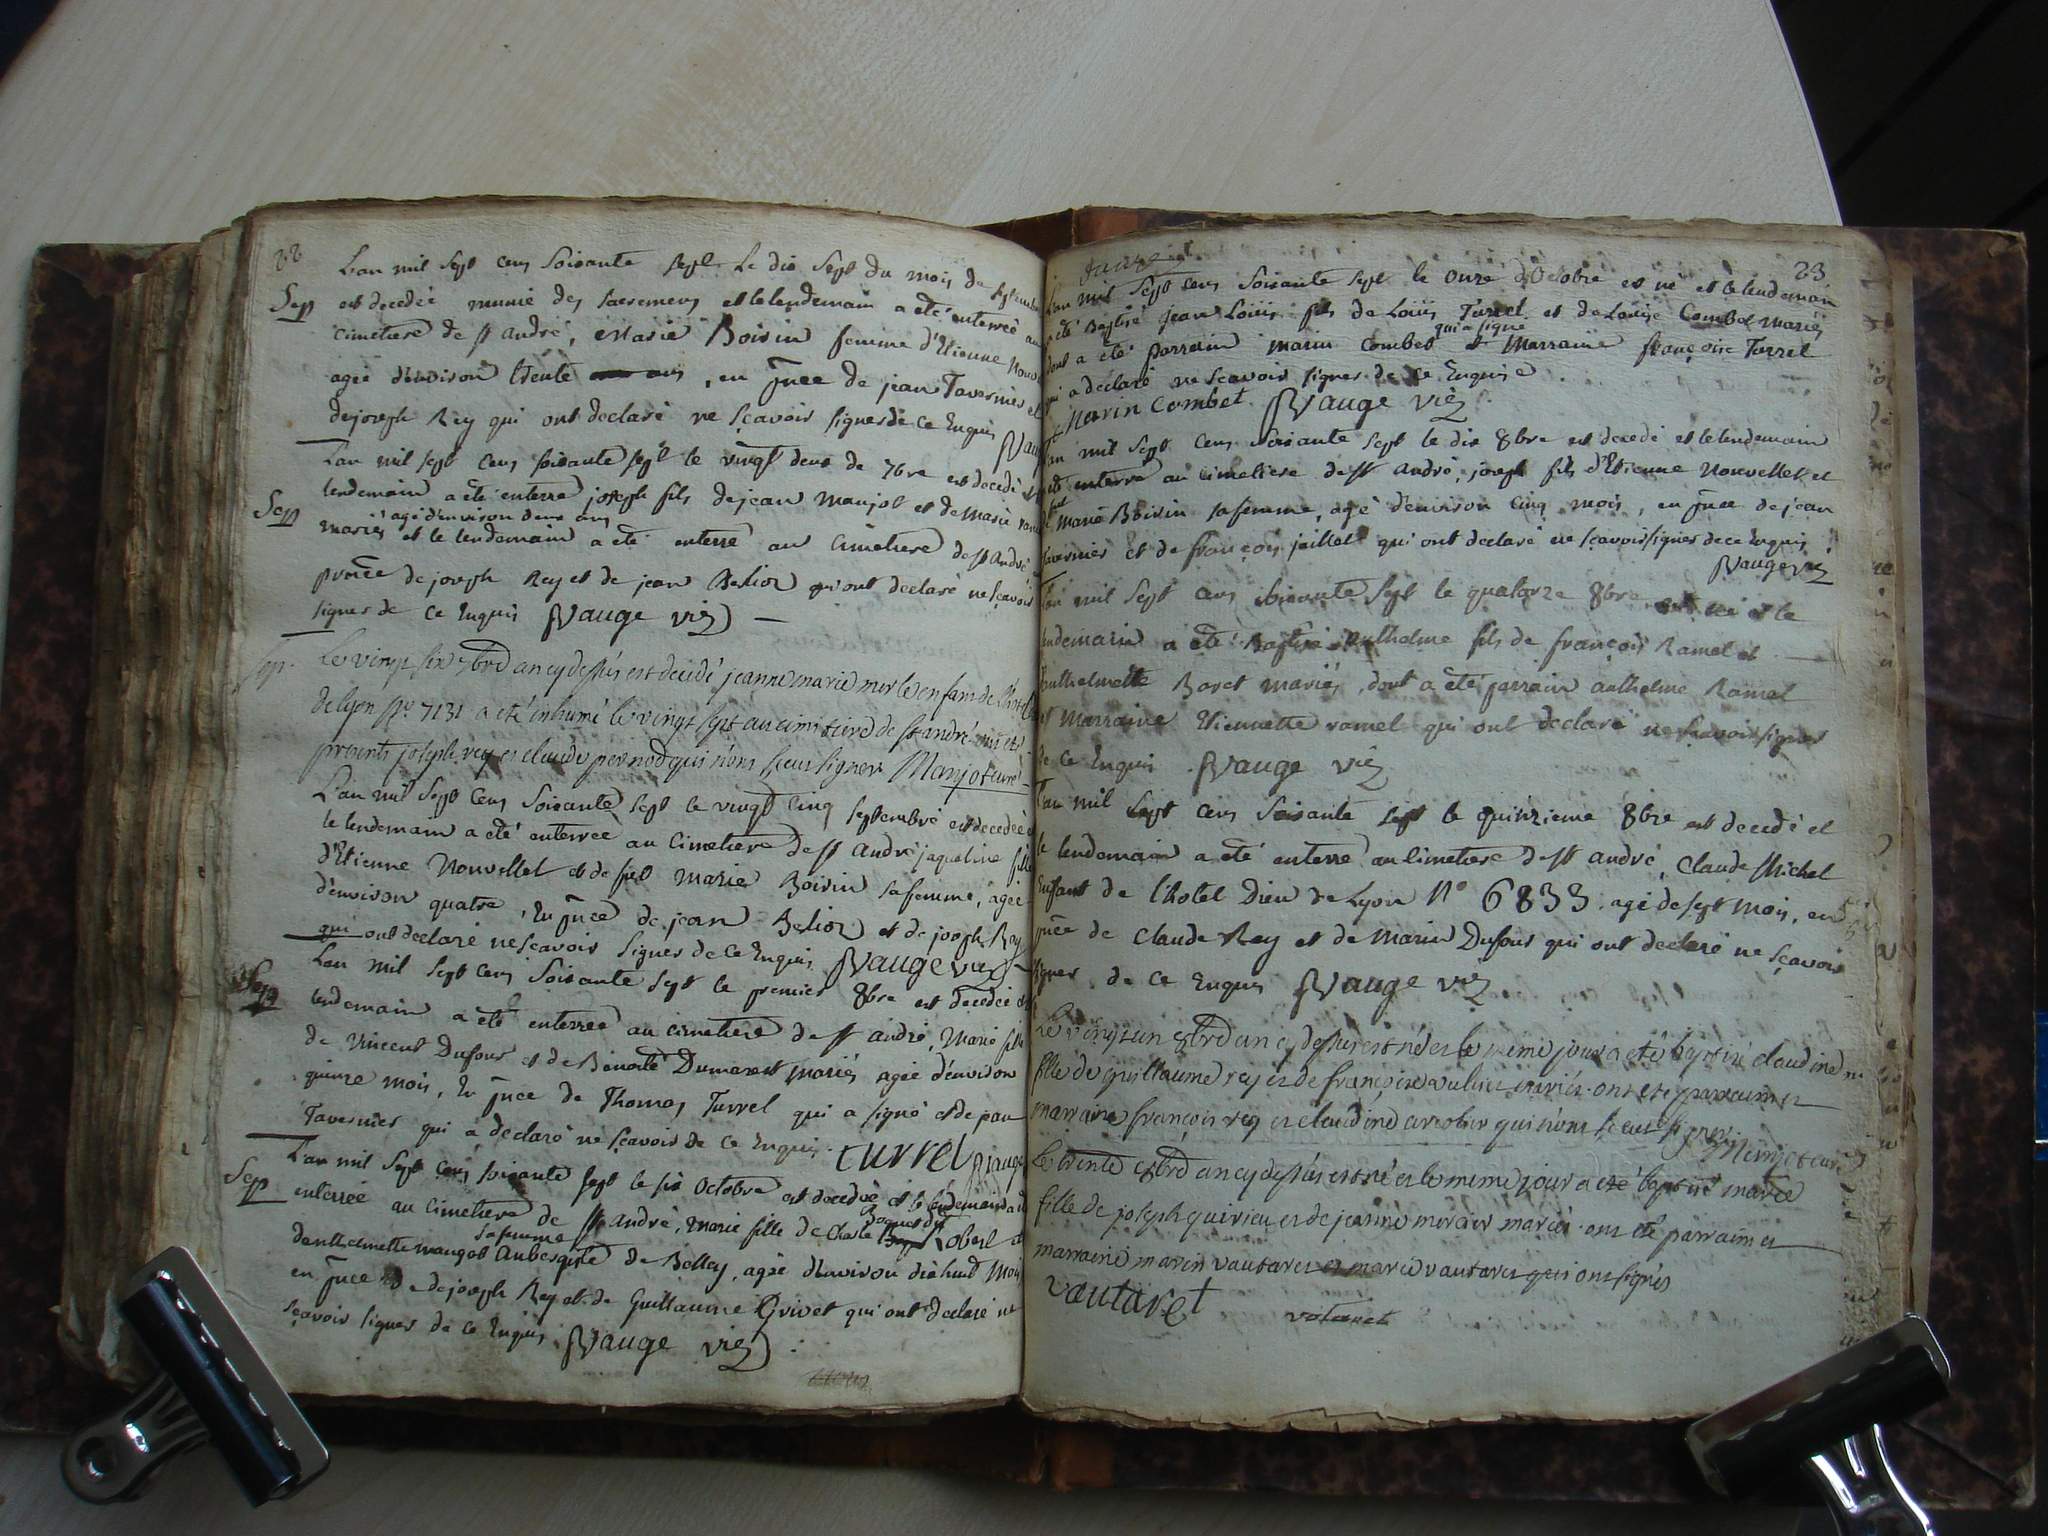 22
L'an mil sept cens soixante sept le dix sept du mois de septembre
Sep est decedée munie des sacremens et le lendemain a été enterrée au
cimetiere de st andré, Marie Boivin femme d'Etienne
agée d'environ trente, en pnce de jean Tavernier et
de joseph Rey qui ont declaré ne sçavoir signer de ce Enquis
L'an mil sept cens soixante sept le vingt deux de 7bre est decedé et
Sep lendemain a été enterré joseph fils de jean Manjot et de Marie
agé d'environ deux ans
mariés et le lendemain a été enterré au cimetiere de st André
pnce de joseph Rey et de jean Belion qui ont declaré ne sçavoir
signer de ce Enquis Vauge vic
Sep. Le vingt six 7bre an cy dessus est decidé jeanne marie merle enfant de
de lyon no 7131 a été inhumé le vingt sept au cimetiere de st andré
presents joseph rey et claude pernod qui n'ont sceu signer Manjot curé
L'an mil sept cens soixante sept le vingt cinq septembre est decedée
le lendemain a été enterrée au cimetiere de st André jaqueline fille
d'Etienne Nouvellet et de feu Marie Boivin sa femme, agée
d'environ quatre, en pnce de jean Belion et de joseph Rey
qui ont declaré ne sçavoir signer de ce Enquis Vauge vic
L'an mil sept cens soixante sept le premier 8bre est decedée et
Sep lendemain a été enterrée au cimetiere de st andré, Marie fille
de Vincent Dufour et de Benoite Dumarest mariés agée d'environ
quinze mois, En pnce de Thomas Turrel qui a signé et de
Tavernier qui a declaré ne sçavoir de ce Enquis. turrel Vauge
L'an mil sept cens soixante sept le six Octobre est decedée et le lendemain a été
Sep enterrée au cimetiere de st André, Marie fille de Charle
sa femme
d'anthelmette maugot de Belley, agée d'environ dixhuit Mois
en pnce de joseph Rey et de Guillaume Grivet qui ont declaré ne
sçavoir signer de ce Enquis Vauge vic
23
L'an mil sept cens soixante sept le onze d'Octobre est né et le lendemain
été Baptisé jean Loüis fils de Loüis Turrel et de Loüise Combet mariés
qui a signé
dont a été parrain marin Combet et Marraine françoise Turrel
qui a declaré ne sçavoir signer de ce Enquise
Marin Combet Vauge vic
L'an mil sept cens soixante sept le dix 8bre est decedé et le lendemain
été enterré au cimetiere de st andré, joseph fils d'Etienne Nouvellet et
feu
Marie Boivin sa femme, agé d'environ cinq mois, en pnce de jean
tavernier et de françois jaillet qui ont declaré ne sçavoir signer de ce Enquis
Vauge vic
L'an mil sept cens soixante sept le quatorze 8bre est né et le
lendemain a été Baptisé Anthelme fils de françois Ramel et
Anthelmette Baret mariés, dont a été parrain anthelme Ramel
et Marraine Etiennette ramel qui ont declaré ne sçavoir signer
de ce Enquis Vauge vic
L'an mil sept cens soixante sept le quinzieme 8bre est decedé et
le lendemain a été enterré au cimetiere de st andré, Claude Michel
Enfant de l'hotel Dieu de Lyon N° 6833 agé de sept mois, en
pnce de Claude Rey et de Marin Dufour qui ont declaré ne sçavoir
signer de ce Enquis Vauge vic
Le vingt un 8bre an cy dessus est né et le meme jour a été baptisé claudine
fille de guillaume rey et de françoise mariés. ont été parrain et
marraine françois rey et claudine qui n'ont sceu signer Manjot curé
Le trente 8bre an cy dessus est né et le meme jour a été baptisé marie
fille de joseph quirieu et de jeanne mercier mariés. ont été parrain et
marraine marin vautaret et marie vautaret qui ont signés
vautaret votaret